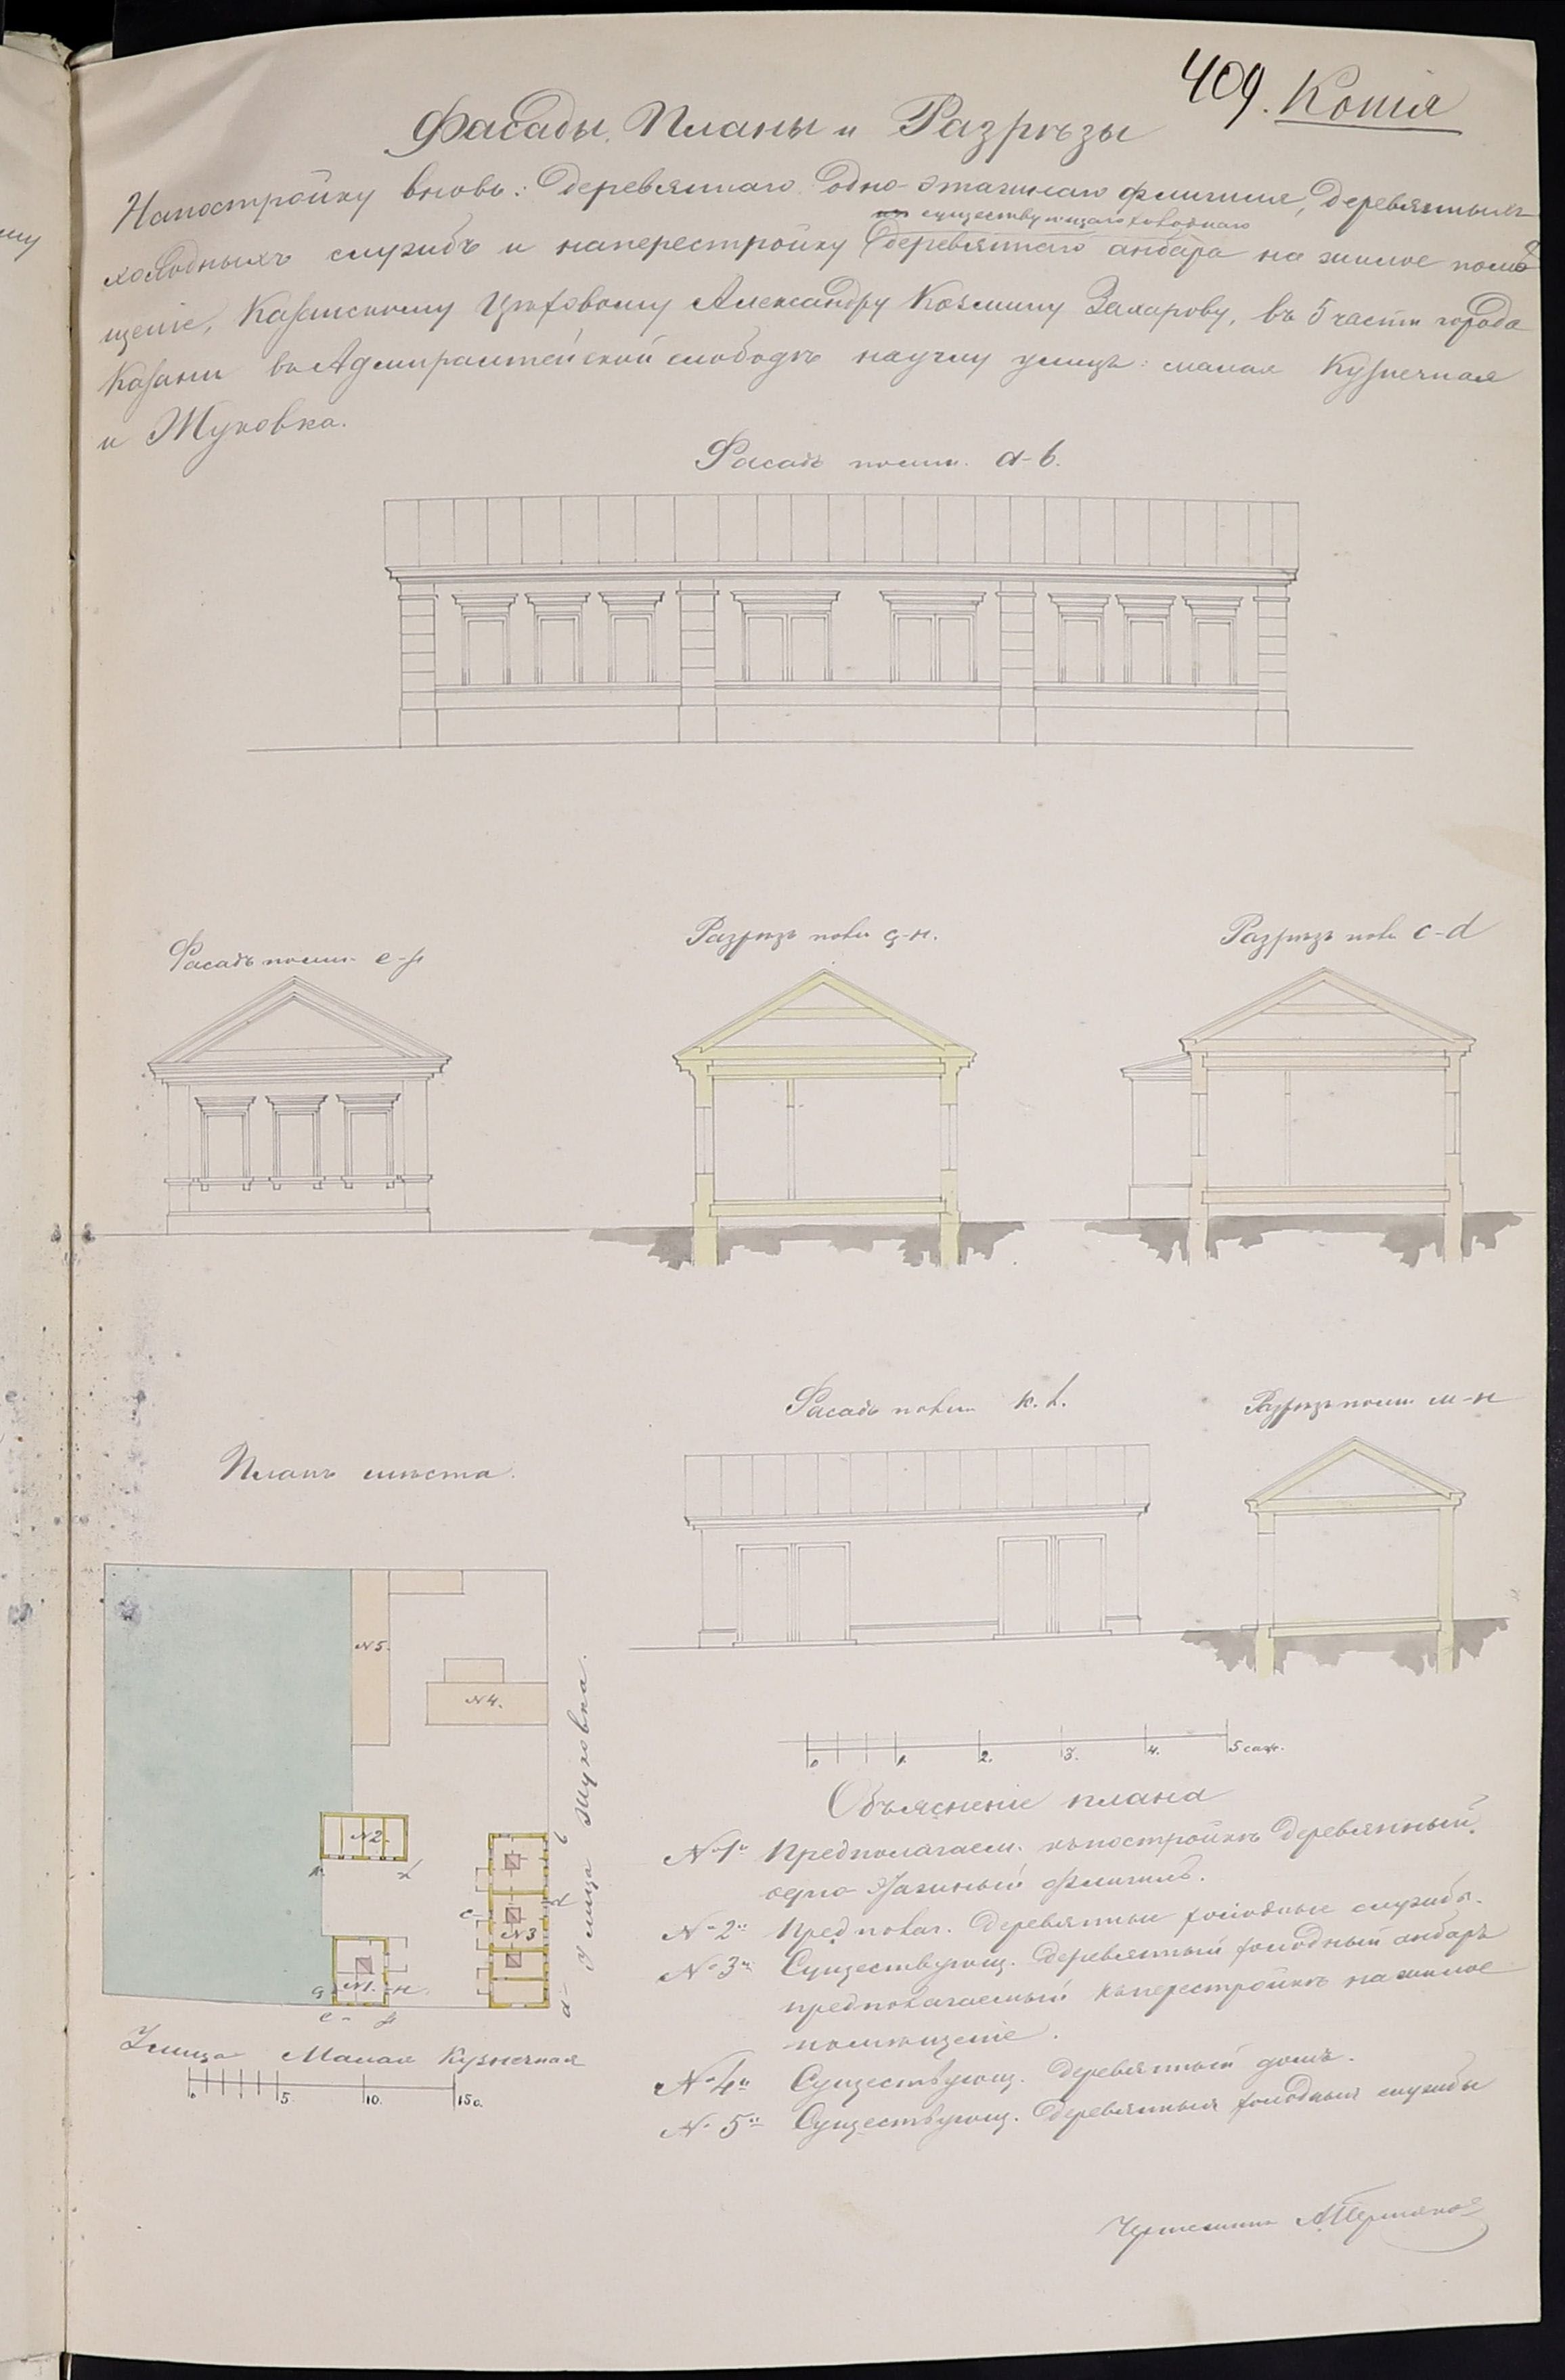 409. Копія
Фасады, Планы и Разрѣзы
На постройку вновь: деревяннаго одно-этажнаго флигиля, деревянныхъ
существующаго холоднаго
холодныхъ службъ и на перестройку деревяннаго анбара на жилое помѣ
щеніе, Казанскому Цѣховому Александру Козмину Захарову, въ 5 части города
Казани въ Адмиралтейской слободѣ на углу улицъ: малая Кузнечная
и Жуковка.
Фасадъ по лин. a-b.
Фасадъ по лин. e-f
Разрѣзъ по ли g-н.
Разрѣзъ по ли c-d
Фасадъ по лин k.l.
Разрѣзъ по лин м-н
Планъ мѣста.
N5.
N4.
N2.
k l
b
c d
N3
a
Улица Жуковка.
g N1. н
e f
Улица Малая Кузнечная
0 5 10. 15 с.
0 1. 2. 3. 4. 5 саж.
Объясненіе плана
N 1й Предполагаем. къ постройкѣ деревянный
одно-этажный флигиль.
N 2й Предполаг. деревянные холодные службы.
N 3й Существующ. деревянный холодный анбаръ
предполагаемый къ перестройкѣ на жилое
помѣщеніе.
N 4й Существующ. деревянный домъ.
N 5й Существующ. деревянныя холодныя службы